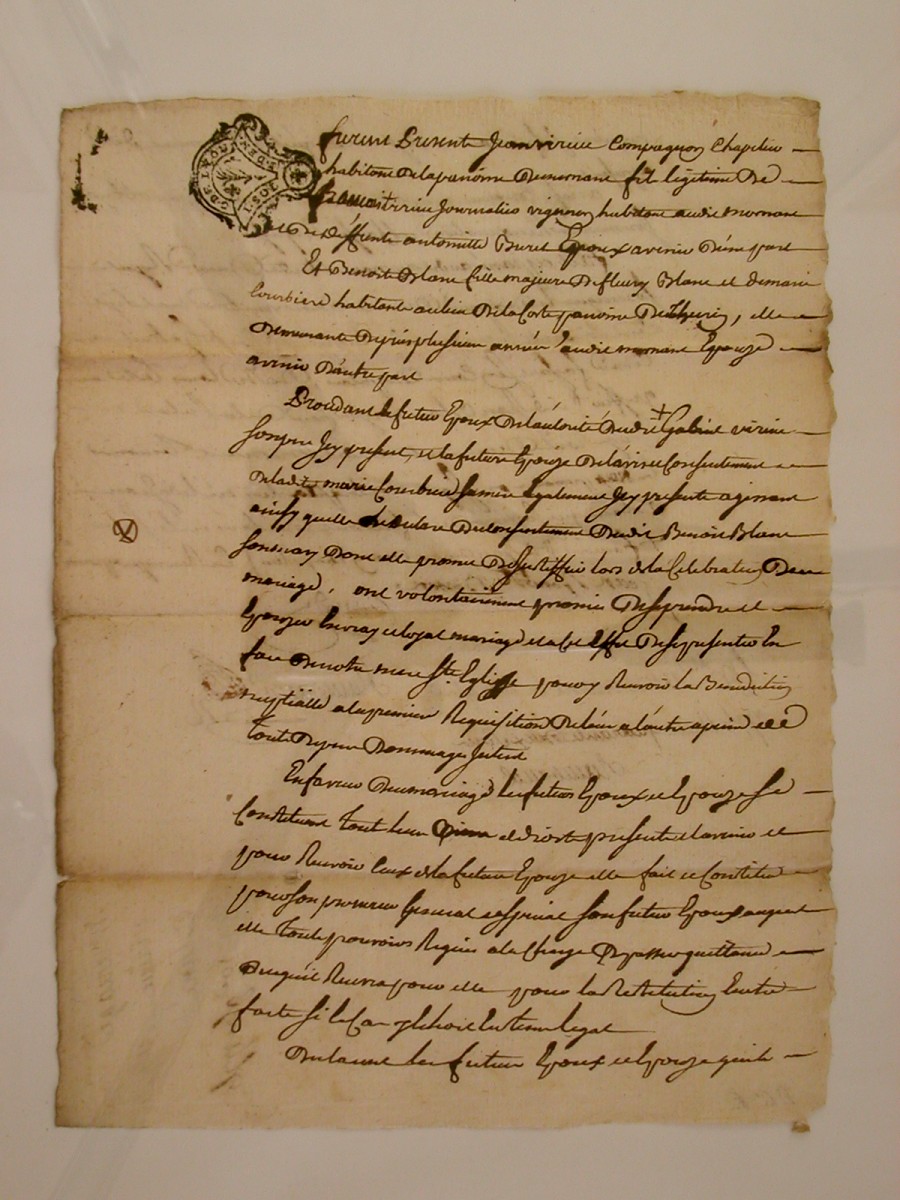 furent Presents Jean virieu Compagnon Chapelier
habitant de la paroisse De mornant fils legitime De
virieu Journalier vigneron habitant audit mornant
et De Deffunte antoinette Buret Epoux avenir D'une part
Et Benoite Blanc fille majeure De fleury Blanc et de marie
Courbiere habitants au lieu De la Coste paroisse De Thurin, elle
Demeurante Depuis plusieurs années audit mornant Epouze
avenir D'autre part
Procedant le futur Epoux De l'autorité Dudit Gabriel virieu
son pere Icy present, et la future Epouze De l'avis et Consentement
De ladite marie Courbiere sa mere Egalement Icy presente agissant
ainsy quelle Declare Du Consentement Dudit Benoit Blanc
son mary Dont elle promet De justiffier lors de la Celebration Du
mariage, ont volontairement promis De se prendre et
Epouzer En vray et loyal mariage et a Cet Effet De se presenter En
face De notre mere Ste Eglise pour y Recevoir la Benediction
nuptialle a la premiere Requisition De l'un a l'autre a peine de
touts Depens Dommages Interets
En faveur Du mariage les futurs Epoux et Epouze se
Constituent tout leurs Biens et droits presents et avenir et
pour Recevoir Ceux de la future Epouze elle fait et Constitue
pour son procureur General et special son futur Epoux auquel
elle
pouvoirs Requis a la Charge De passer quittance
De ce qu'il Recevra pour elle pour la Restitution En etre
faite si le Cas y Echoit En tems legal
Declarent les futurs Epoux et Epouze qu'ils